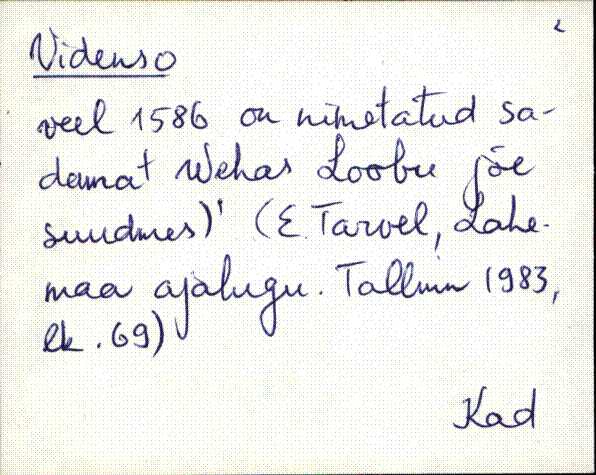 2
Videnso
veel 1586 on nimetatud sa-
damat Wehas Loobu jõe
suudmes)' (E. Tarvel, Lahe-
maa ajalugu. Tallinn 1983,
lk. 69)
Kad